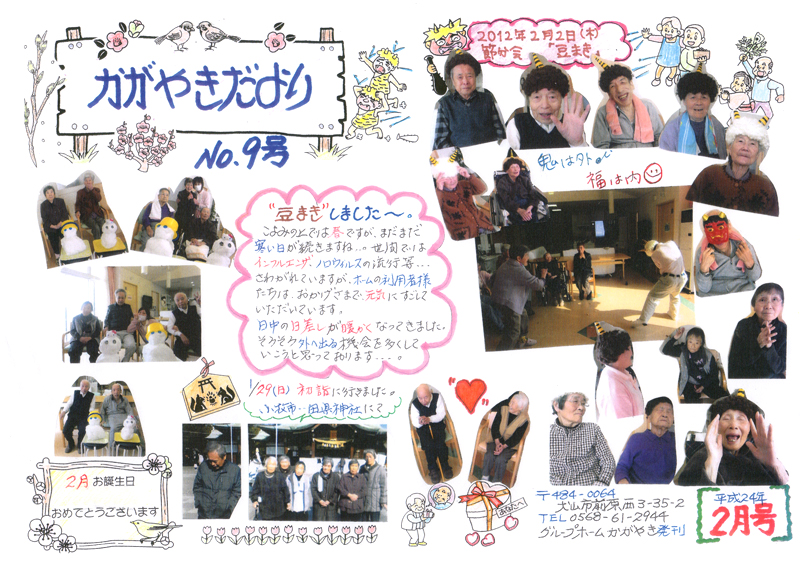 かがやきだより
No.9号
2012年2月2日(木)
節分会 「豆まき」
鬼は外
福は内
"豆まき"しました～。
こよみの上では春ですが、まだまだ
寒い日が続きますね…。世間では
インフルエンザ、ノロウィルスの流行等…
さわがれていますが、ホームの利用者様
たちは、おかげさまで、元気にすごして
いただいています。
日中の日差しが暖かくなってきました。
そろそろ外へ出る機会を多くして
いこうと思っております…。
1/29(日) 初詣に行きました。
小牧市…田県神社にて
2月お誕生日
おめでとうございます
〒484-0064
犬山市前原西3-35-2
TEL 0568-61-2944
グループホームかがやき発刊
平成24年
2月号